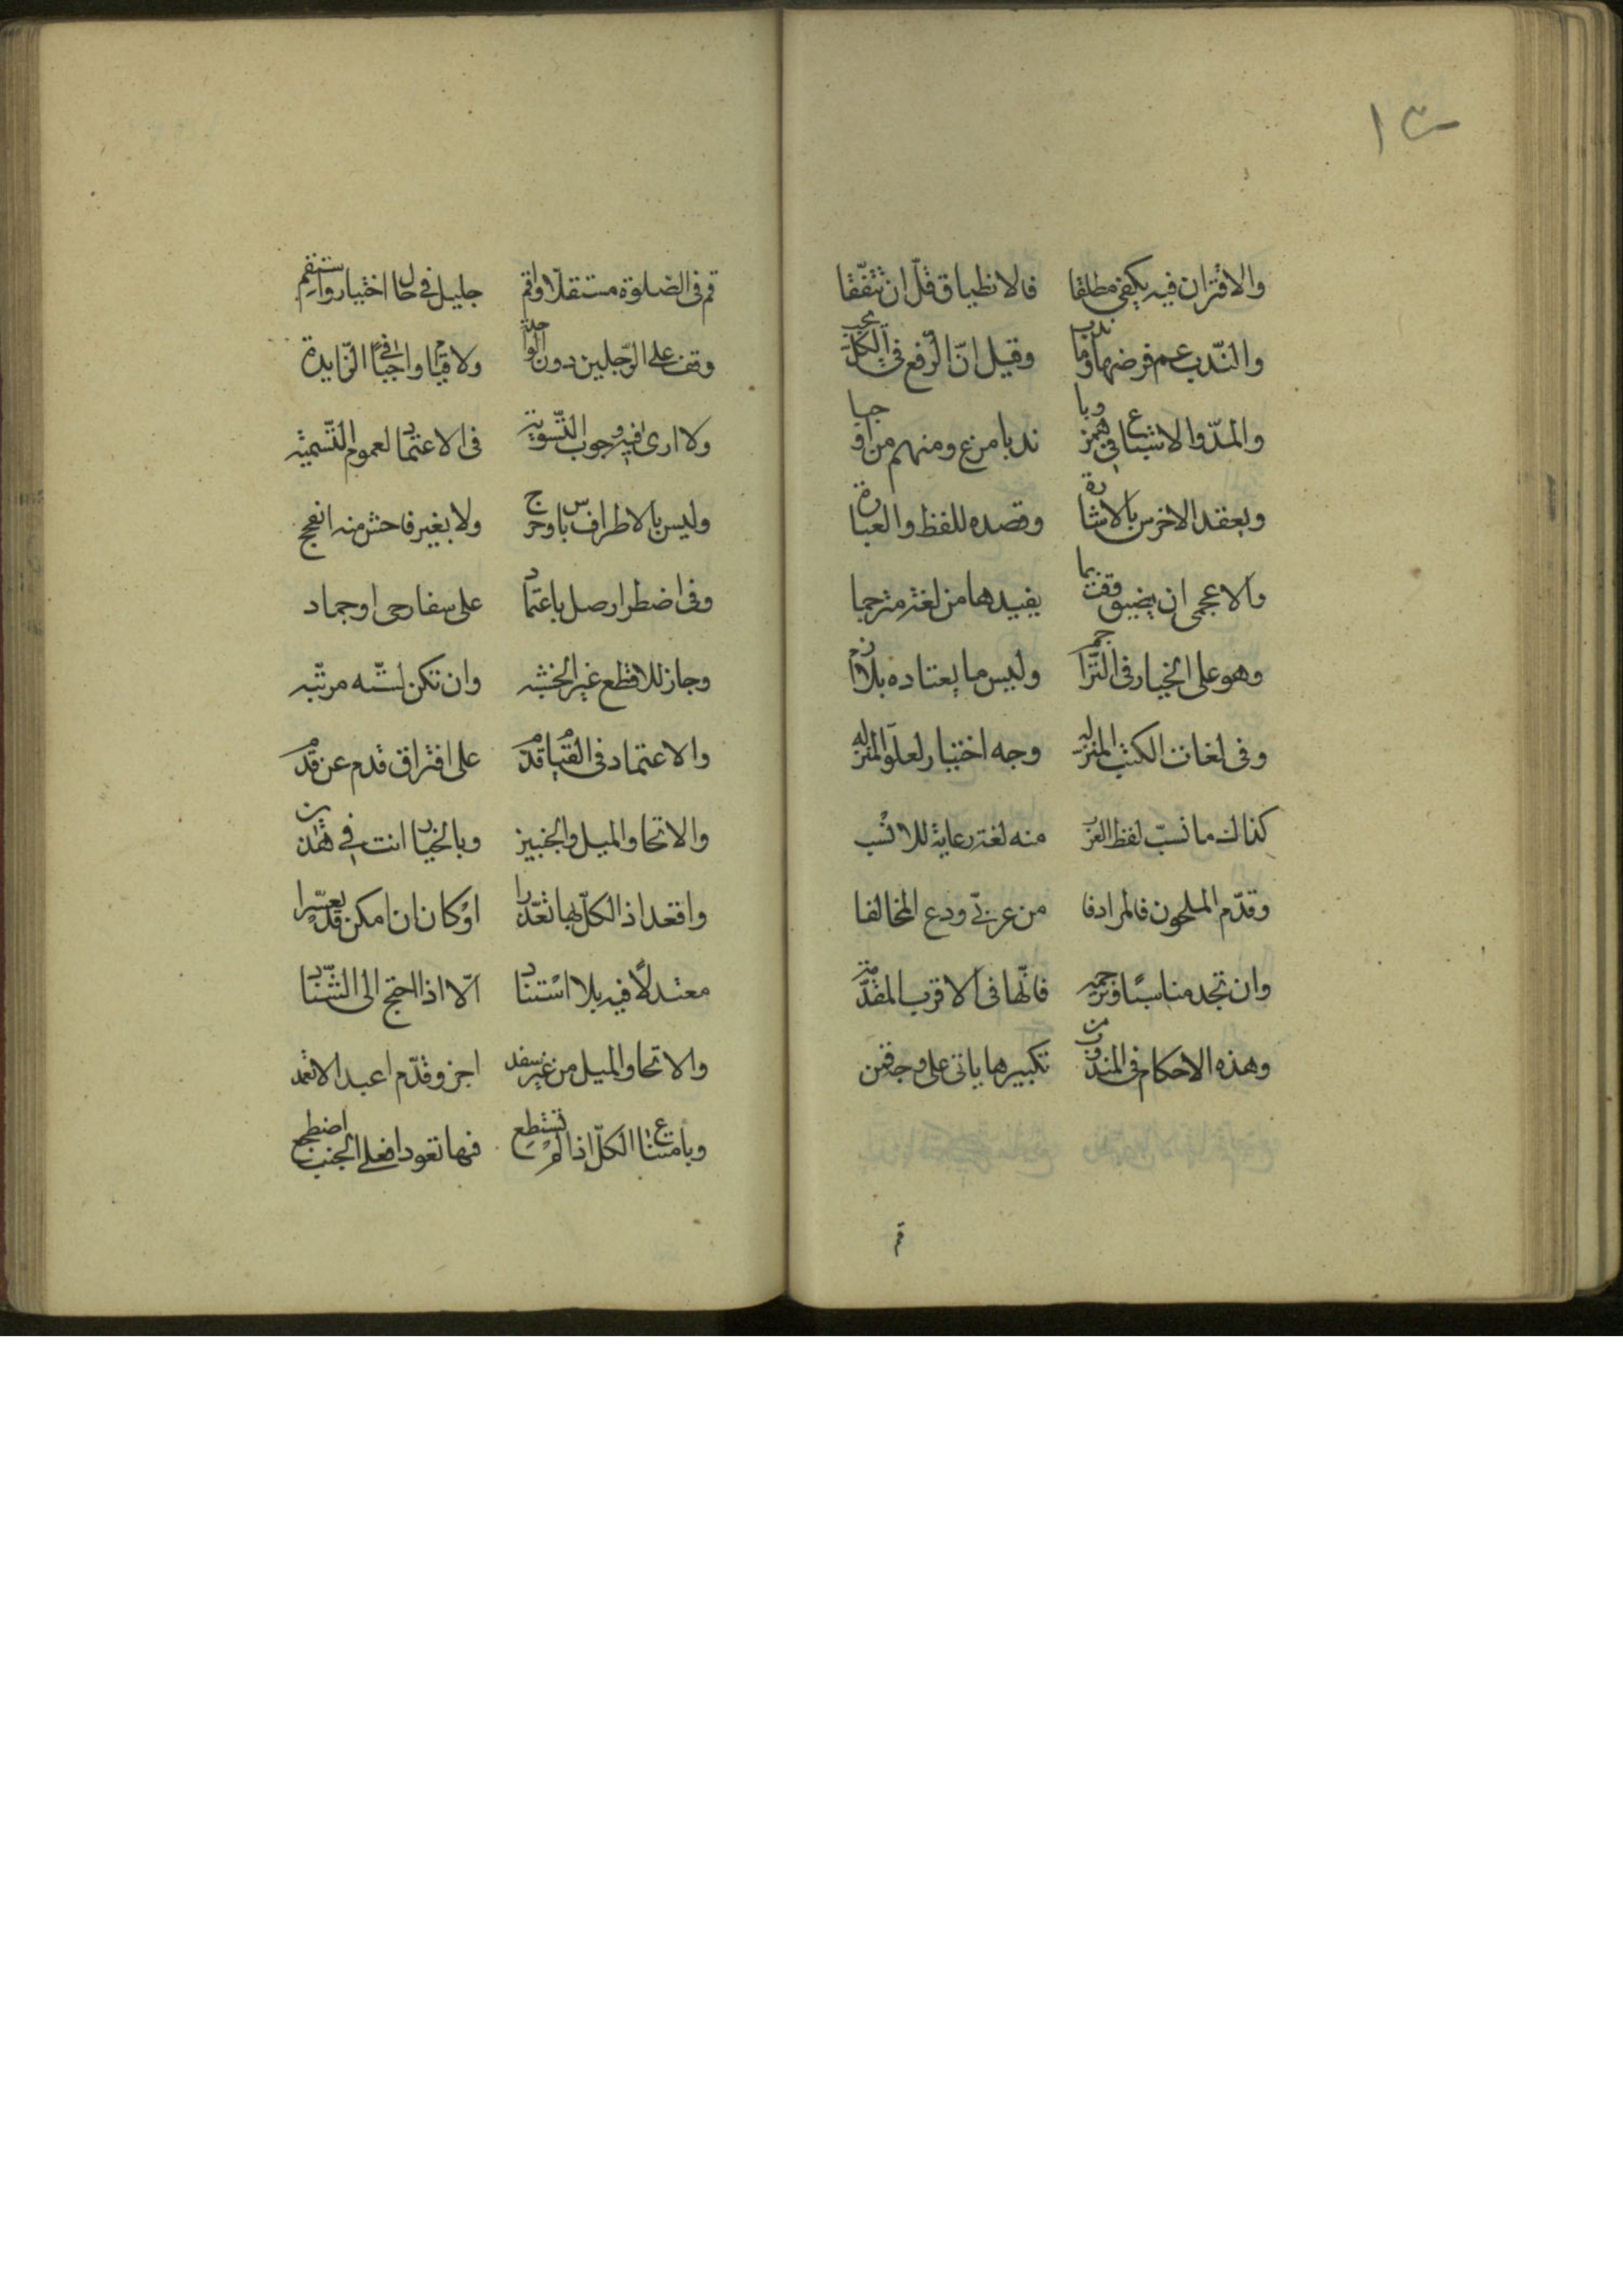 ١٣
والاقتران فيه يكفي مطلقا فالانطباق قلّ ان تتفّقا
والنّدب عم فرضها وما ندب وقيل انّ الرّفع في الكلّ يجب
والمدّ والاشباع في همز وبا ندبا مزع ومنهم من اوجبا
ويعقد الاخرس بالاشارة وقصده للفظ والعبارة
والاعجمي ان يضيق وقت بما يفيدها من لغته مترجما
وهو على الخيار في التراجم وليس ما يعتاده بلازم
وفي لغات الكتب المنزله وجه اختيار لعلوّ المنزله
كذاك ما نسبّ لفظ العرب منه لغة رعاية للانسب
وقدّم الملحون فالمرادفا من عربيّ ودع المخالفا
وان تجد مناسبًا وترجمه فانّها في الاقرب المقدّمة
وهذه الاحكام في المندوب من تكبيرها ياتي على وجه قمن
قم
قم في الصّلوة مستقلّا واقم جليل في حال اختيار واستقم
وقف على الرّجلين دون الواحدة ولا قيامًا واجبًا في الزّايدة
ولا ارى فيه وجوب التّسوية في الاعتماد لعموم التّسمية
وليس بالاطراف باس وحرج ولا بغير فاحش منه انفرج
وفي اضطرار صل باعتماد على سفارحى او جماد
وجاز للاقطع غير الخشبه وان تكن لشبه مرتّبه
والاعتماد في القيام قدّم على افتراق قدم عن قدم
والانحا والميل والجنبين وبالخيار انت في هذين
واقعد اذ الكلّ بها تعذّرا او كان ان امكن قد تعسّرا
معتدلًا فيه بلا استناد الّا اذا احتج الى السّناد
والانحا والميل من غير سفد اجز وقدّم اعبد الاقعد
وبامتناع الكلّ اذا لم تستطع فيها تعودا فعلى الجنب اضطجع